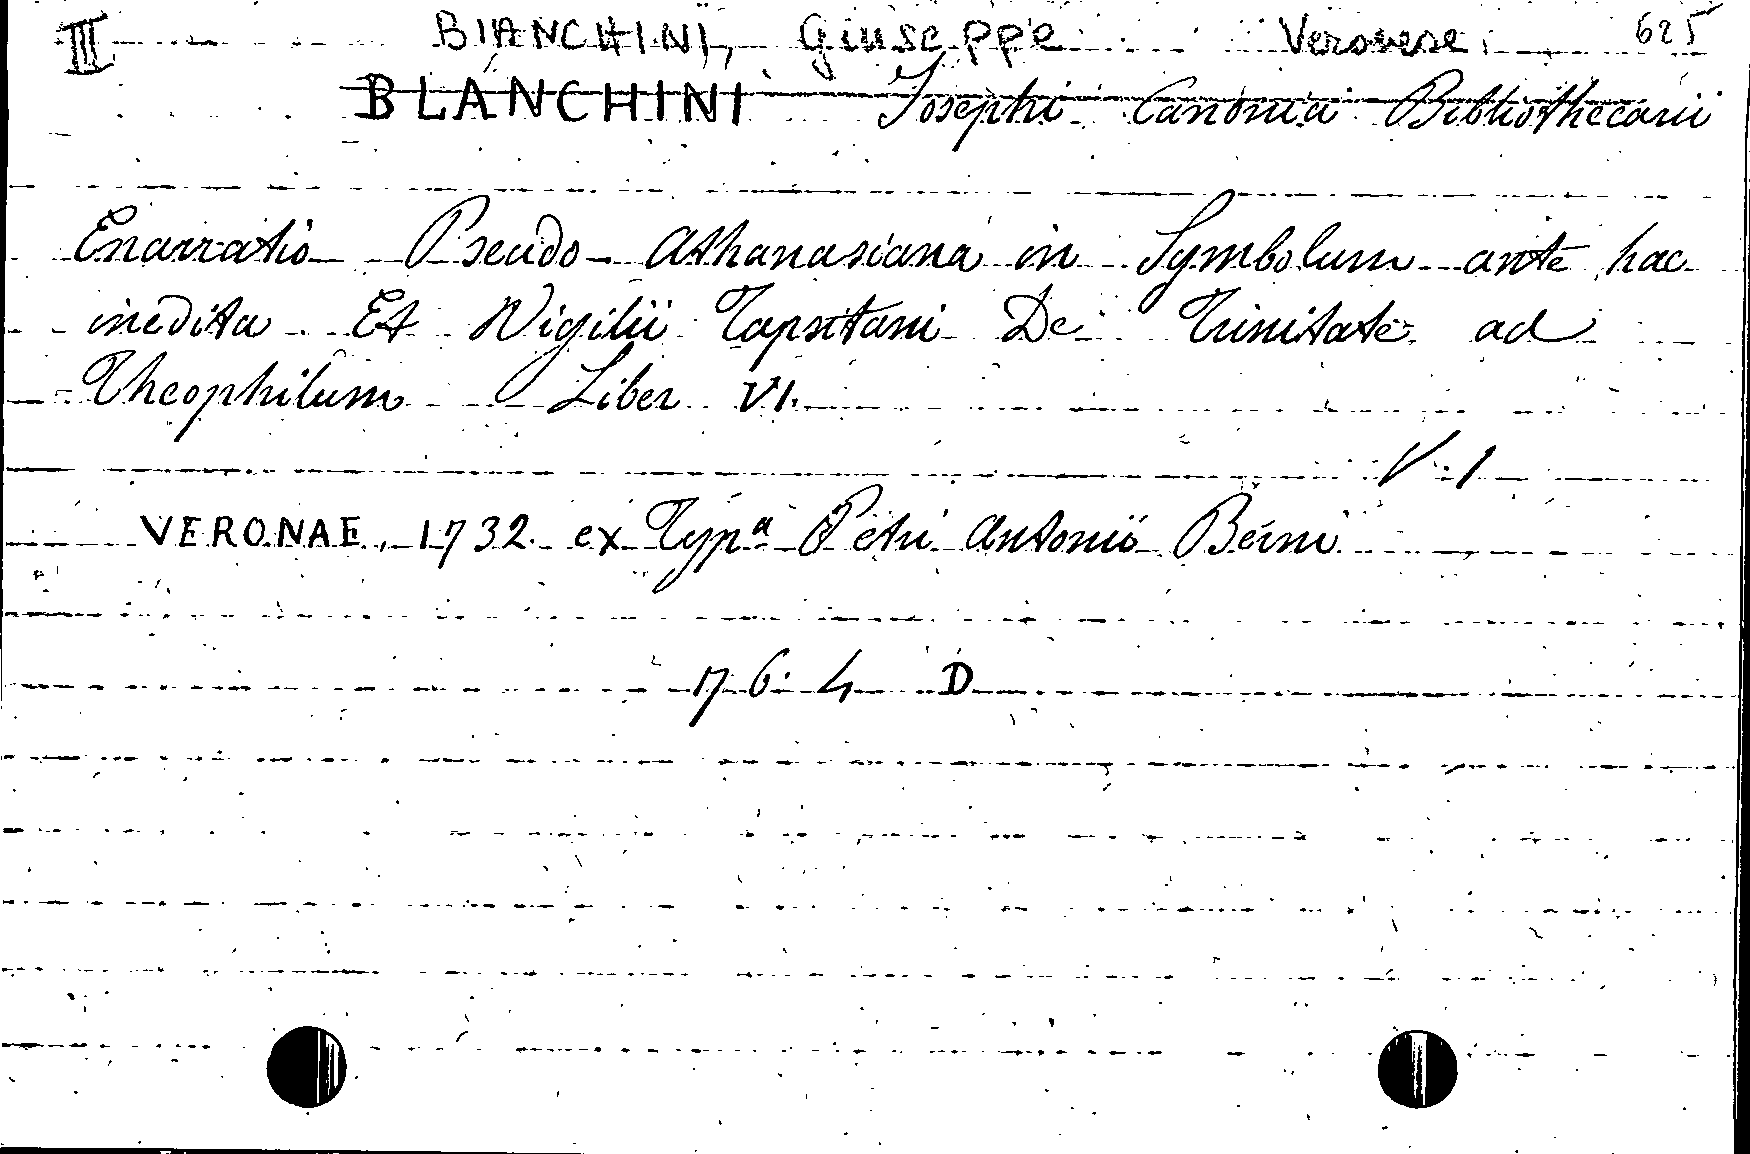 III BIANCHINI, Giuseppe Veronese. 625
BLANCHINI Josephi Canonici Bibliothecarii
Enarratio Pseudo-Athanasiana in Symbolum ante hac
inedita Et Vigilii Tapsitani De Trinitate ad
Theophilum Liber VI.
V. 1
VERONAE, 1732. ex Typª Petri Antonii Berni
17 6 4 D